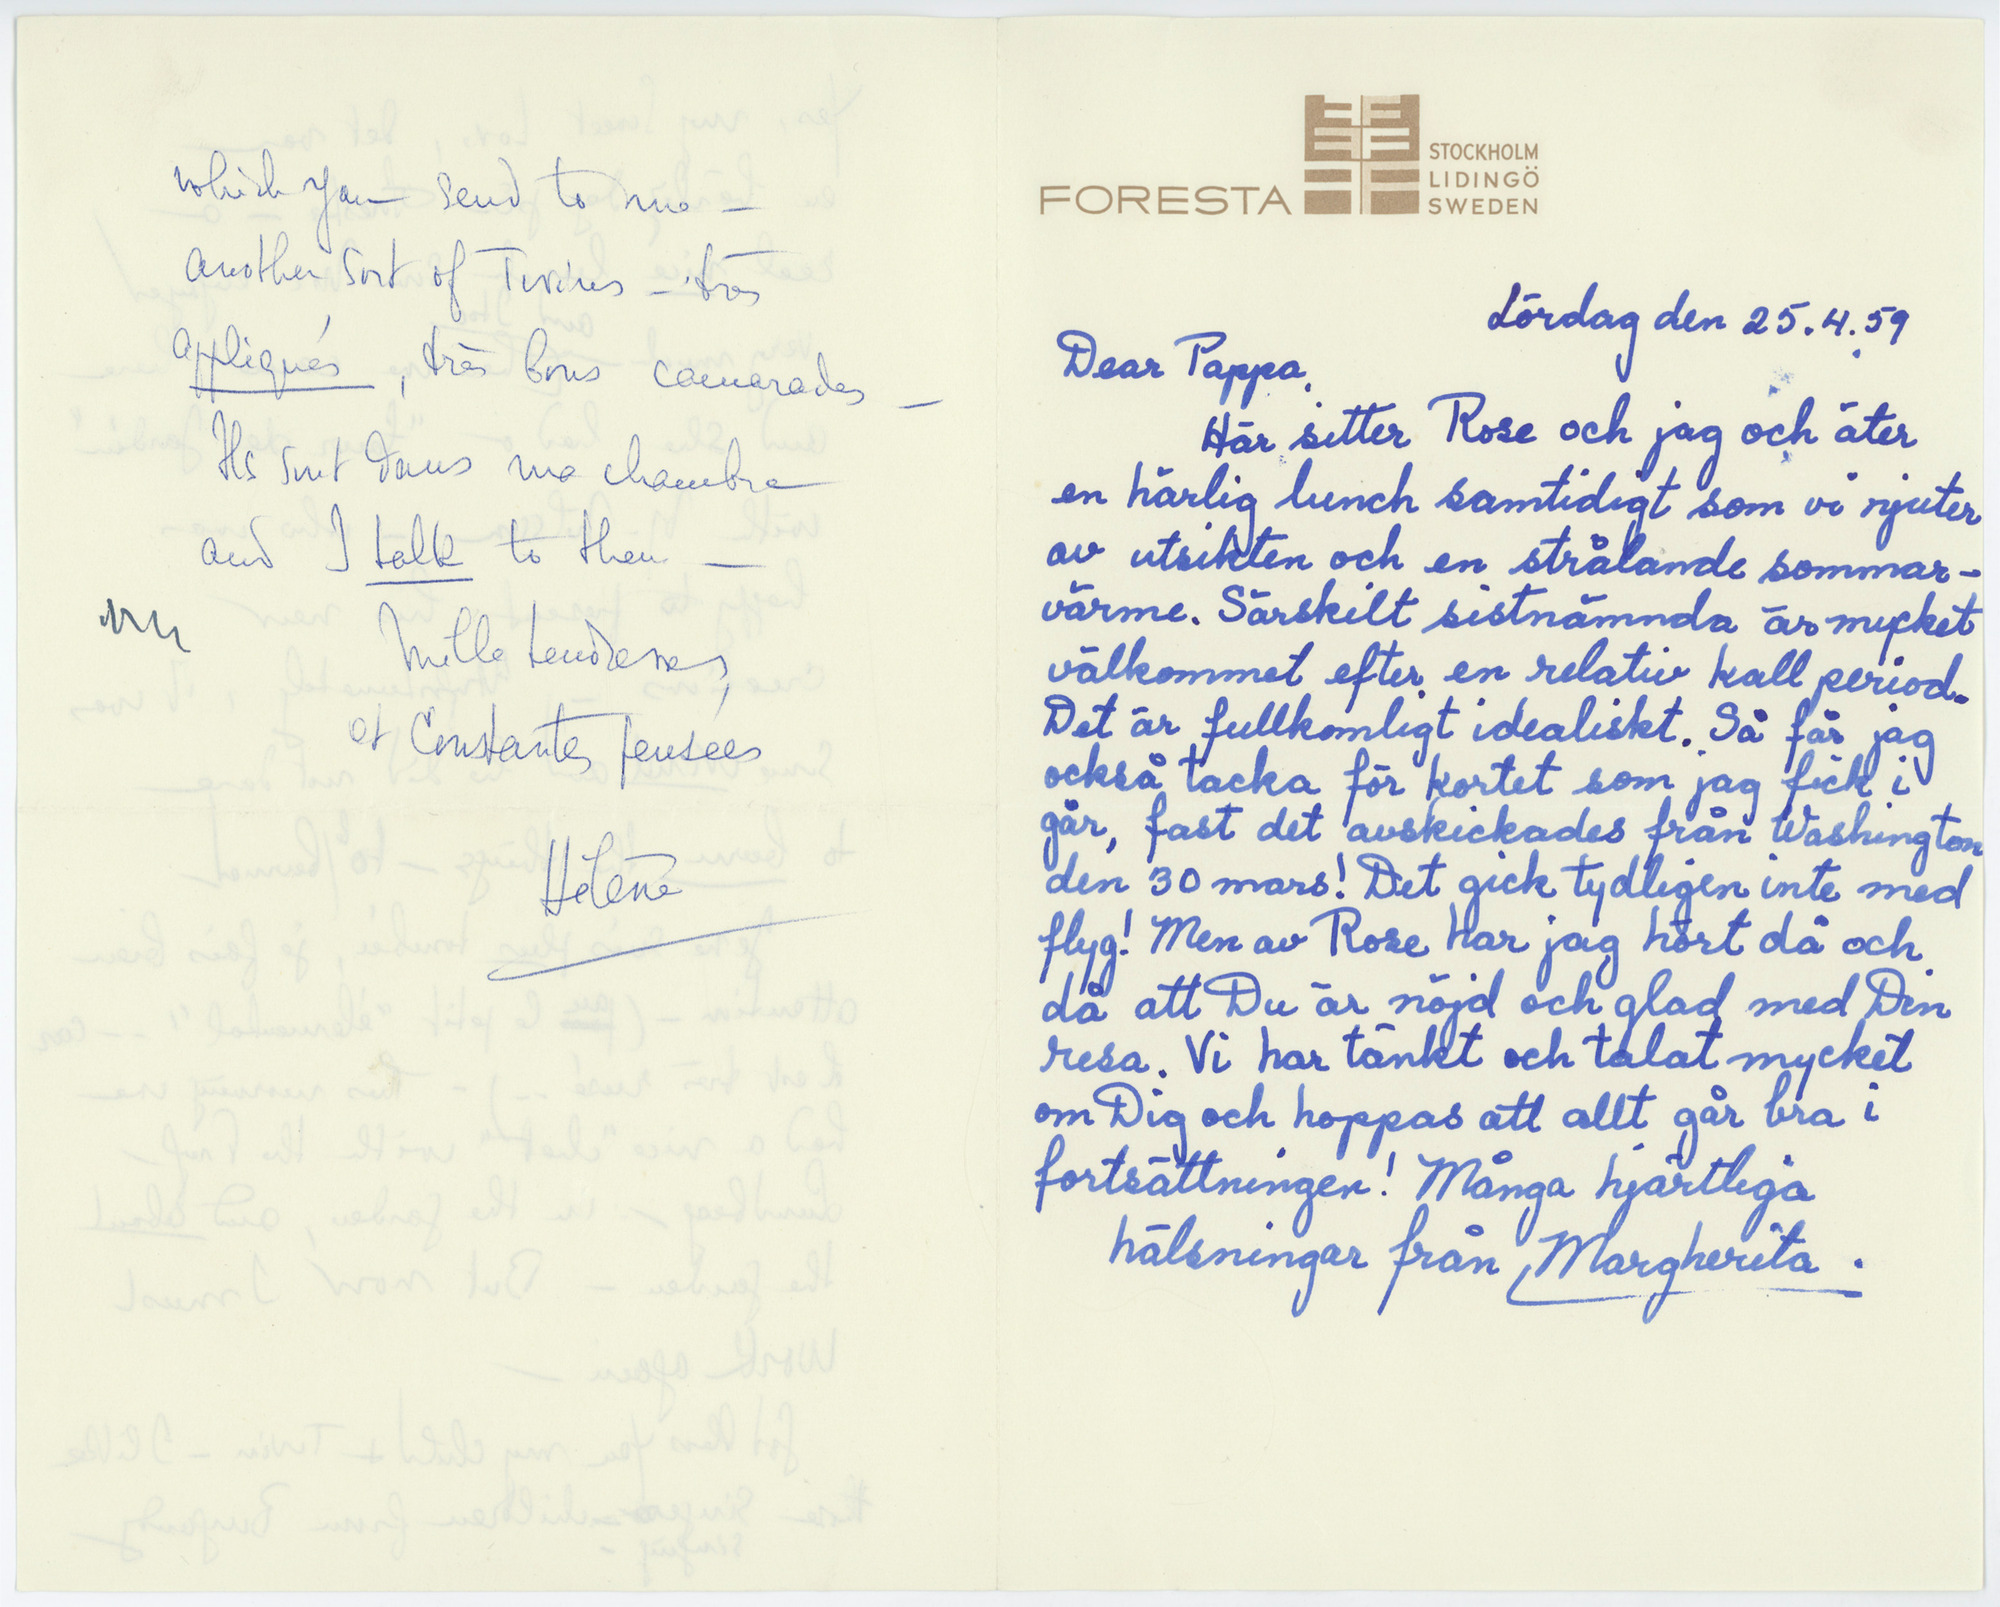 which you send to me –
another sort of Twins – très
appliqués, très bons camarades –
Ils sont dans ma chambre
and I talk to them –
Mille tendresses,
et Constantes pensées
Hélène
FORESTA
STOCKHOLM
LIDINGÖ
SWEDEN
Lördag den 25.4.59
Dear Pappa,
Här sitter Rose och jag och äter
en härlig lunch samtidigt som vi njuter
av utsikten och en strålande sommar-
värme. Särskilt sistnämnda är mycket
välkommet efter en relativ kall period.
Det är fullkomligt idealiskt. Så får jag
också tacka för kortet som jag fick i
går, fast det avskickades från Washington
den 30 mars! Det gick tydligen inte med
flyg! Men av Rose har jag hört då och
då att Du är nöjd och glad med Din
resa. Vi har tänkt och talat mycket
om Dig och hoppas att allt går bra i
fortsättningen! Många hjärtliga
hälsningar från Margherita.